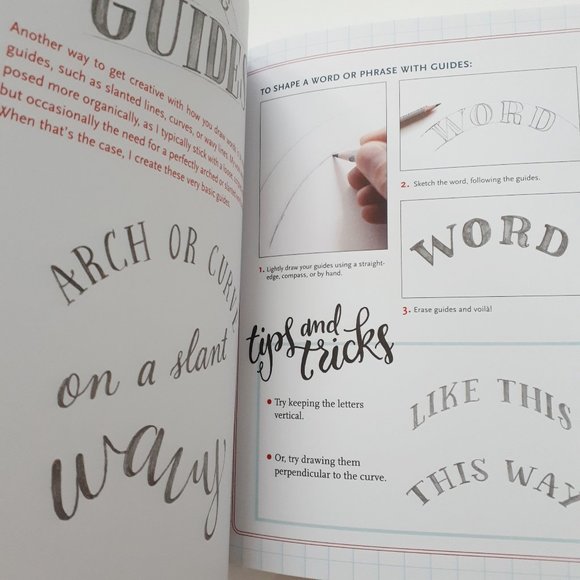 &
GUIDES
Another way to get creative with how you draw words
guides, such as slanted lines, curves, or wavy lines.
posed more organically, as I typically stick with a loose
but occasionally the need for a perfectly arched or slanted
When that's the case, I create these very basic guides.
ARCH OR CURVE
on a slant
wavy
TO SHAPE A WORD OR PHRASE WITH GUIDES:
1. Lightly draw your guides using a straight-
edge, compass, or by hand.
WORD
2. Sketch the word, following the guides.
WORD
3. Erase guides and voilà!
tips and
tricks
• Try keeping the letters
vertical.
LIKE THIS
• Or, try drawing them
perpendicular to the curve.
THIS WAY